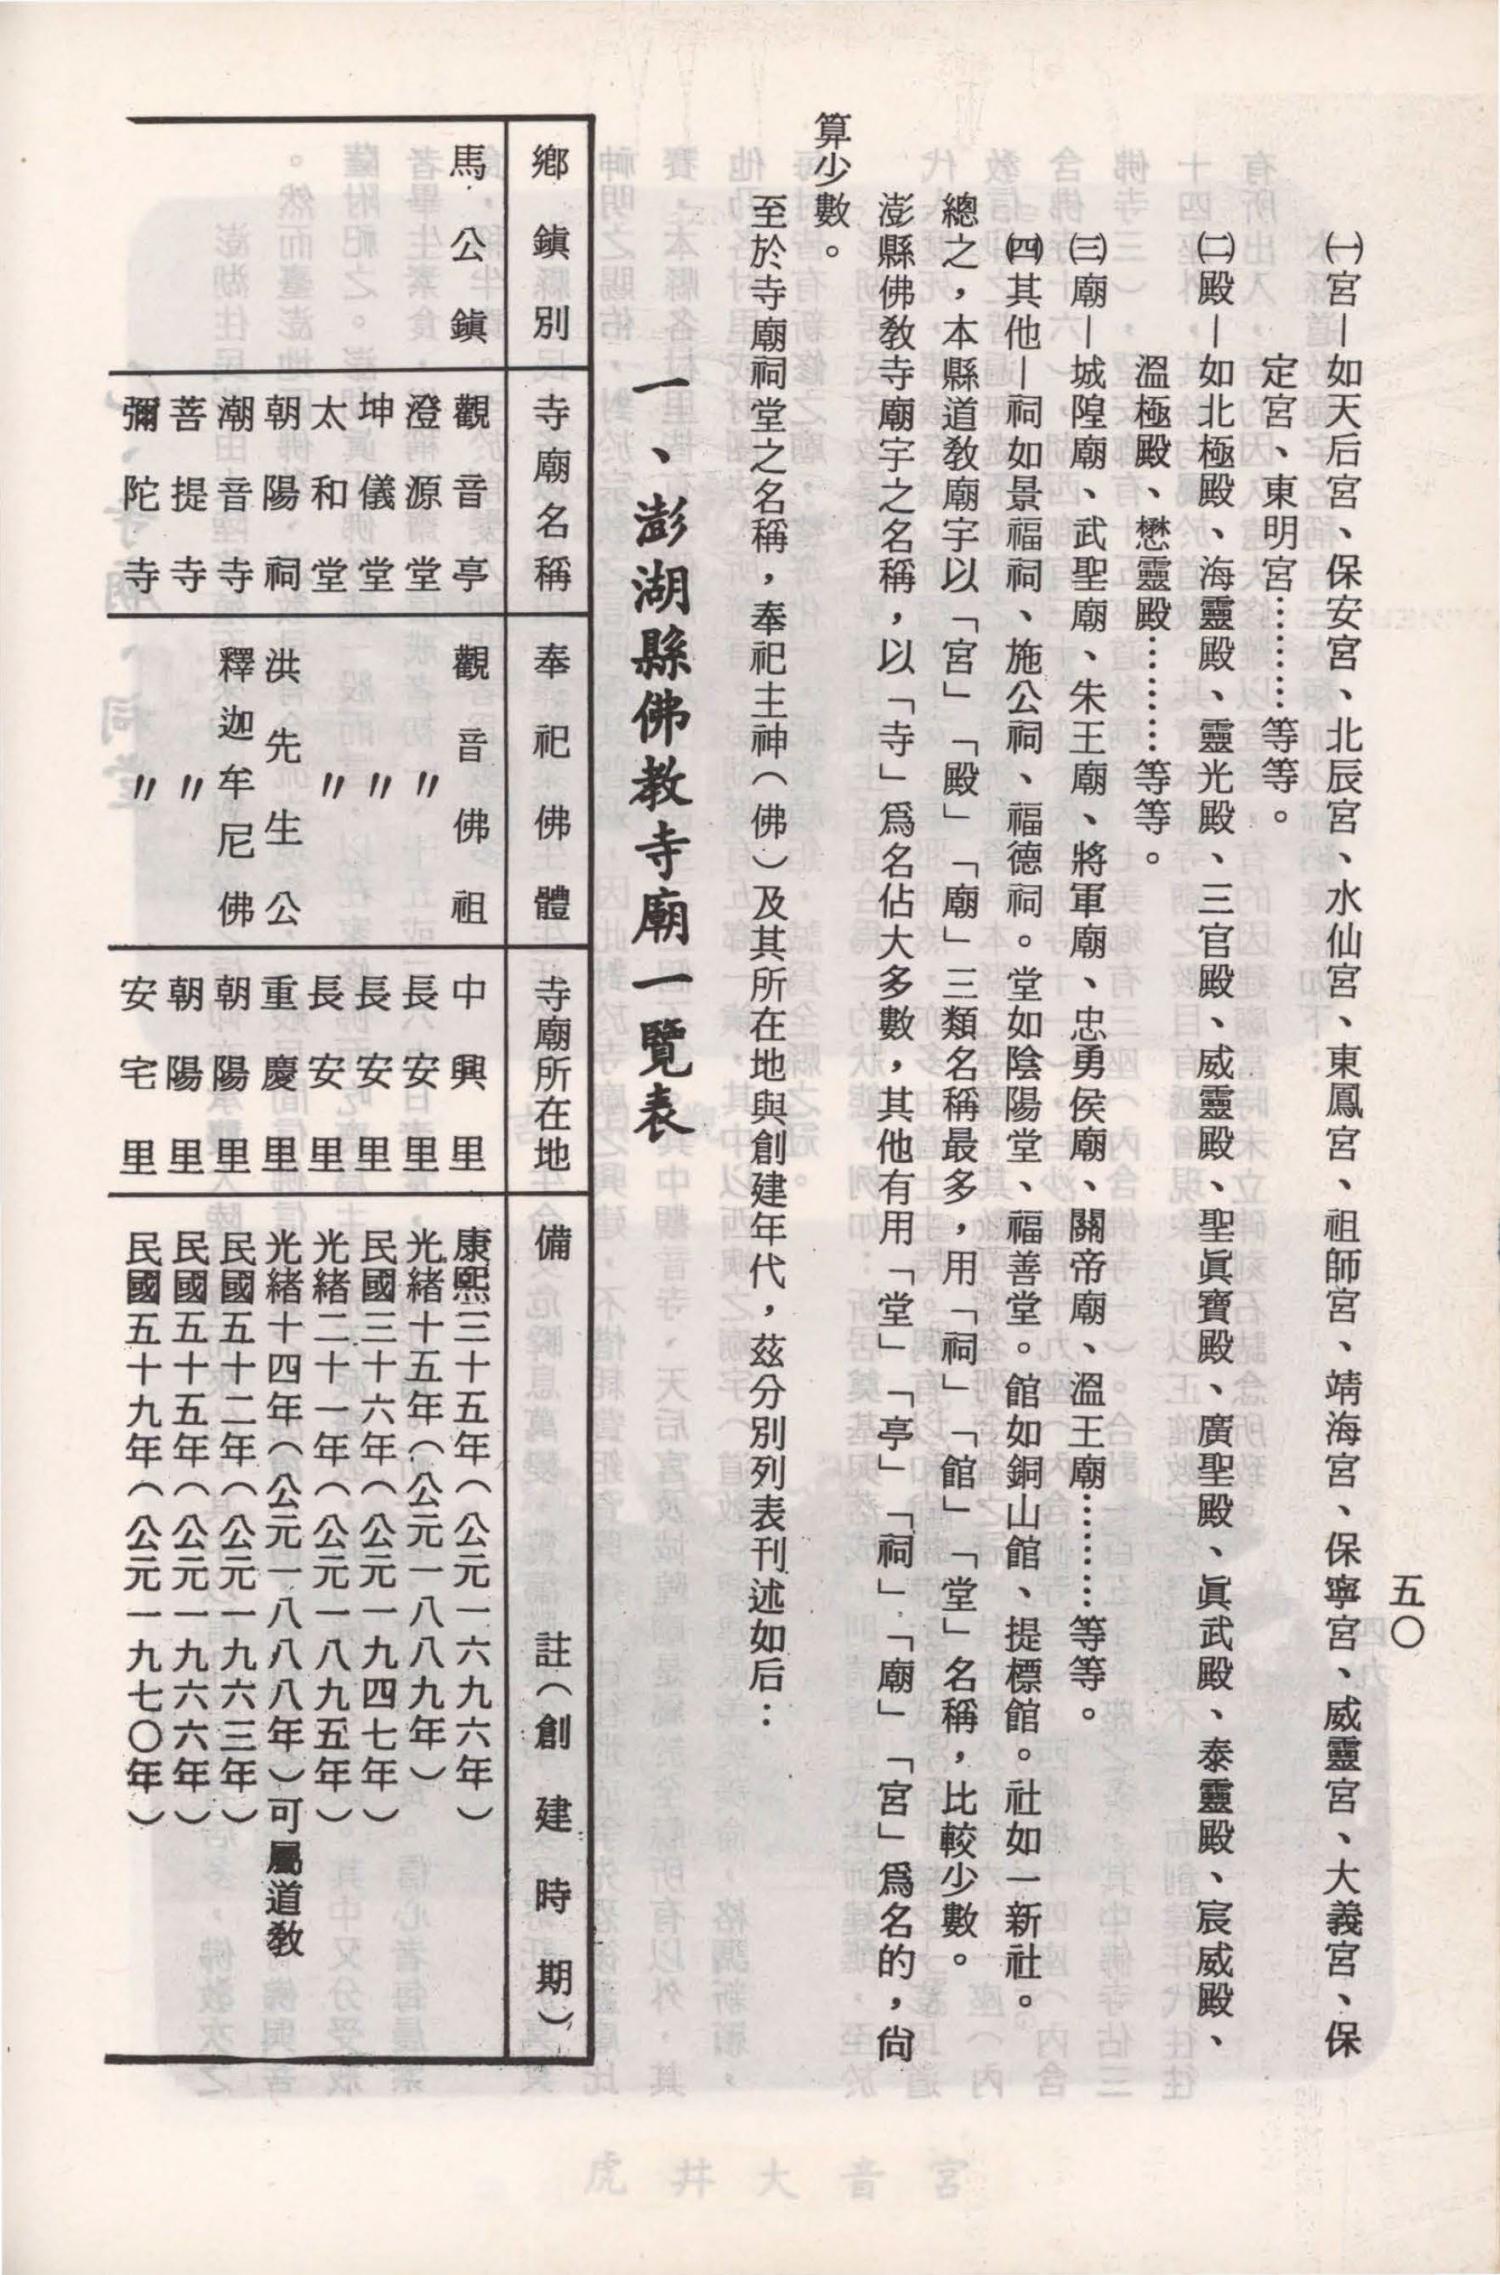 五〇
㈠宮—如天后宮、保安宮、北辰宮、水仙宮、東鳳宮、祖師宮、靖海宮、保寧宮、威靈宮、大義宮、保
定宮、東明宮…………等等。
㈡殿—如北極殿、海靈殿、靈光殿、三官殿、威靈殿、聖眞寶殿、廣聖殿、眞武殿、泰靈殿、宸威殿、
溫極殿、懋靈殿…………等等。
㈢廟—城隍廟、武聖廟、朱王廟、將軍廟、忠勇侯廟、關帝廟、溫王廟…………等等。
㈣其他—祠如景福祠、施公祠、福德祠。堂如陰陽堂、福善堂。館如銅山館、提標館。社如一新社。
總之，本縣道教廟宇以「宮」「殿」「廟」三類名稱最多，用「祠」「館」「堂」名稱，比較少數。
澎縣佛教寺廟宇之名稱，以「寺」爲名佔大多數，其他有用「堂」「亭」「祠」「廟」「宮」爲名的，尙
算少數。
至於寺廟祠堂之名稱，奉祀主神（佛）及其所在地與創建年代，茲分別列表刊述如后：
一、澎湖縣佛教寺廟一覽表
鄉鎭別 寺廟名稱 奉祀佛體 寺廟所在地 備註（創建時期）
馬公鎭 觀音亭 觀音佛祖 中興里 康熙三十五年（公元一六九六年）
澄源堂 〃 長安里 光緒十五年（公元一八八九年）
坤儀堂 〃 長安里 民國三十六年（公元一九四七年）
太和堂 〃 長安里 光緒二十一年（公元一八九五年）
朝陽祠 洪先生公 重慶里 光緒十四年（公元一八八八年）可屬道教
潮音寺 釋迦牟尼佛 朝陽里 民國五十二年（公元一九六三年）
菩提寺 〃 朝陽里 民國五十五年（公元一九六六年）
彌陀寺 〃 安宅里 民國五十九年（公元一九七〇年）